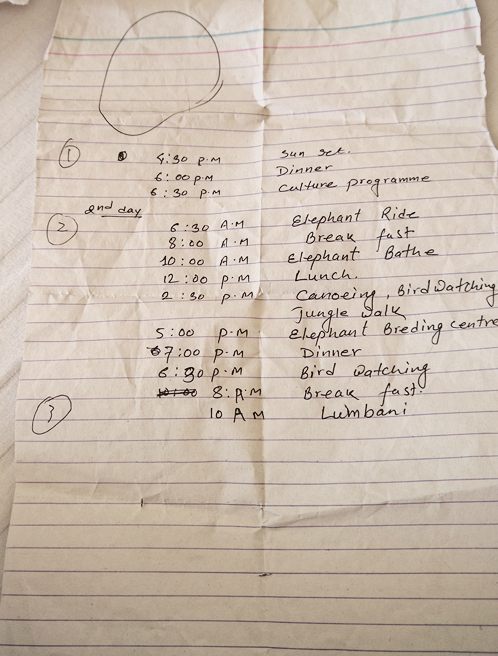 1 4:30 P.M Sun Set.
6:00 P.M Dinner
6:30 P.M Culture programme
2nd day
2 6:30 A.M Elephant Ride
8:00 A.M Break fast
10:00 A.M Elephant Bathe
12:00 P.M Lunch.
2:30 P.M Canoeing, Bird Watching
Jungle walk
5:00 P.M Elephant Breding centre
7:00 P.M Dinner
6:30 P.M Bird watching
8: A.M Break fast.
3 10 AM Lumbani